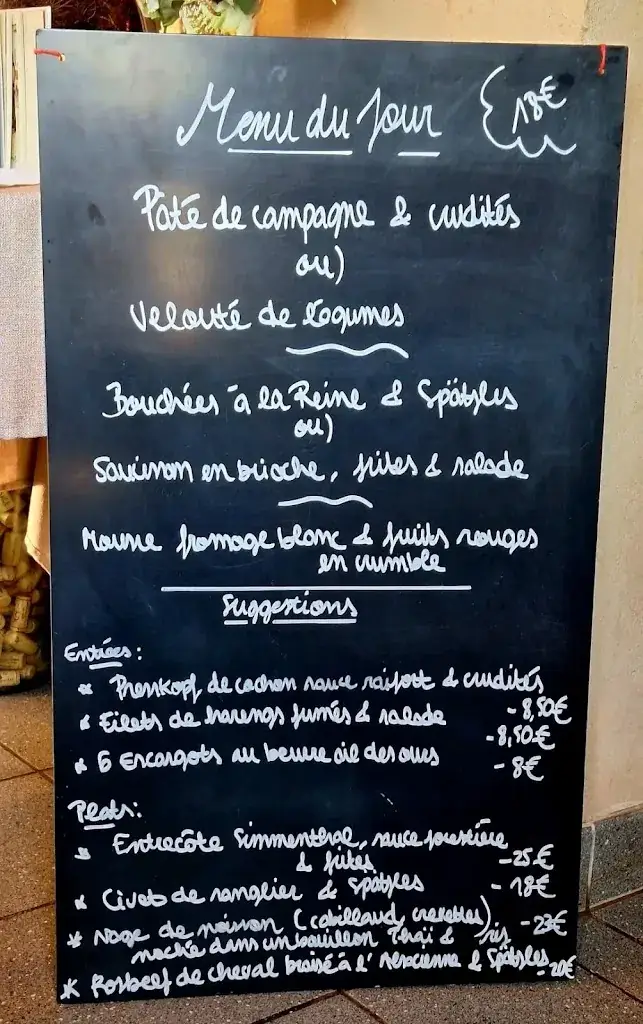 Menu du jour 18€
Pâté de campagne & crudités
ou)
Velouté de légumes
Bouchées à la Reine & Spätzles
ou)
Saucisson en brioche, frites & salade
Mousse fromage blanc & fruits rouges
en crumble
Suggestions
Entrées:
* Presskopf de cochon sauce raifort & crudités
- 8,50€
* Filets de harengs fumés & salade
- 8,50€
* 6 Escargots au beurre ail des ours
- 8€
Plats:
* Entrecôte Simmenthal, sauce forestière
& frites - 25€
* Civet de sanglier & Spätzles - 18€
* Nage de poisson (cabillaud, crevettes) - 23€
poché dans un bouillon Thaï & riz
* Rosbeef de cheval braisé à l' & Spätzles - 20€